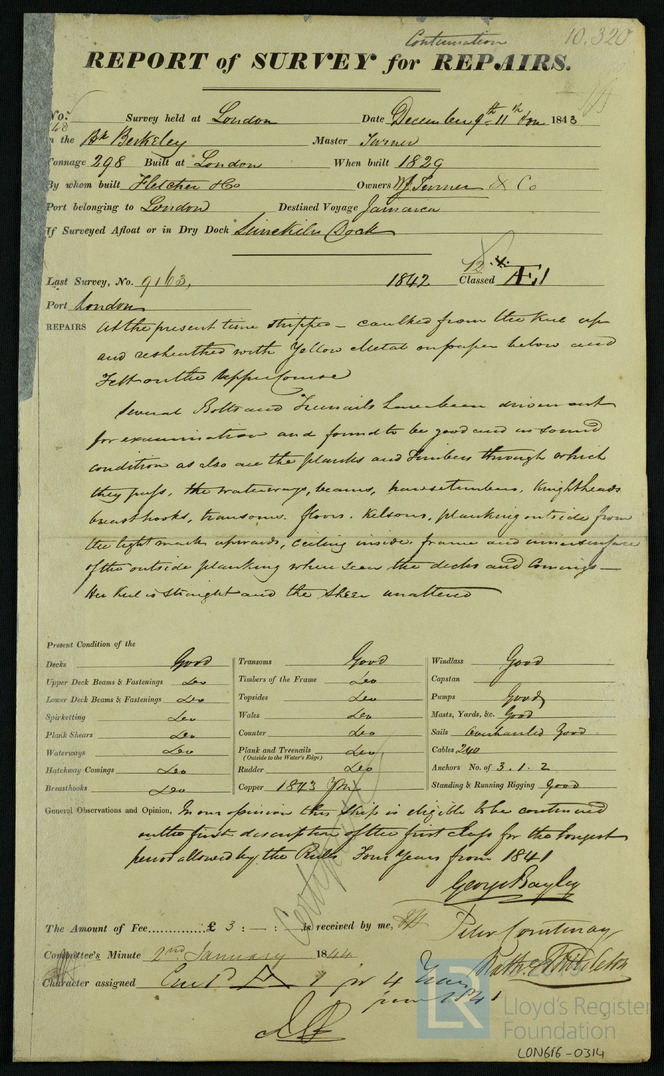 Continuation 10.320
REPORT of SURVEY for REPAIRS.
No. 48 Survey held at London Date December 9th 11th 1843
on the Bk Berkeley Master Turner
Tonnage 298 Built at London When built 1829
By whom built Fletcher & Co Owners W. Turner & Co
Port belonging to London Destined Voyage Jamaica
If Surveyed Afloat or in Dry Dock Limekiln Dock
Last Survey, No. 9163, 1842 Classed 12 Æ1
Port London
REPAIRS At the present time stripped - caulked from the Keel up
and resheathed with Yellow Metal on paper below and
Felt on the upper Course
Several Bolts and Treenails have been driven out
for examination and found to be good and in sound
condition as also are the planks and Timbers through which
they pass, the waterways, beams, hawsetimbers, Knightheads
breasthooks, transoms, floors, Kelsons, planking outside from
the light mark upwards, ceiling inside, frame and inner surface
of the outside planking when seen the decks and Comings -
Her keel is straight and the Sheer unaltered
Present Condition of the
Decks Good
Upper Deck Beams & Fastenings Do
Lower Deck Beams & Fastenings Do
Spirketting Do
Plank Shears Do
Waterways Do
Hatchway Comings Do
Breasthooks Do
Transoms Good
Timbers of the Frame Do
Topsides Do
Wales Do
Counter Do
Plank and Treenails Do
(Outside to the Water's Edge)
Rudder Do
Copper 1843 YM
Windlass Good
Capstan
Pumps Good
Masts, Yards, &c. Good
Sails Overhauled Good
Cables 240
Anchors No. of 3.1.2
Standing & Running Rigging Good
General Observations and Opinion, In our opinion this Ship is eligible to be continued
on the first description of the first class for the longest
period allowed by the Rules Four Years from 1841
George Bayley
The Amount of Fee..............£ 3 : - : is received by me, Peter Courtenay
Committee's Minute 2nd January 1844
Character assigned Cont A 1 for 4 Years
from 1841
Certificate
Lloyd's Register
Foundation
LR
LON616-0314